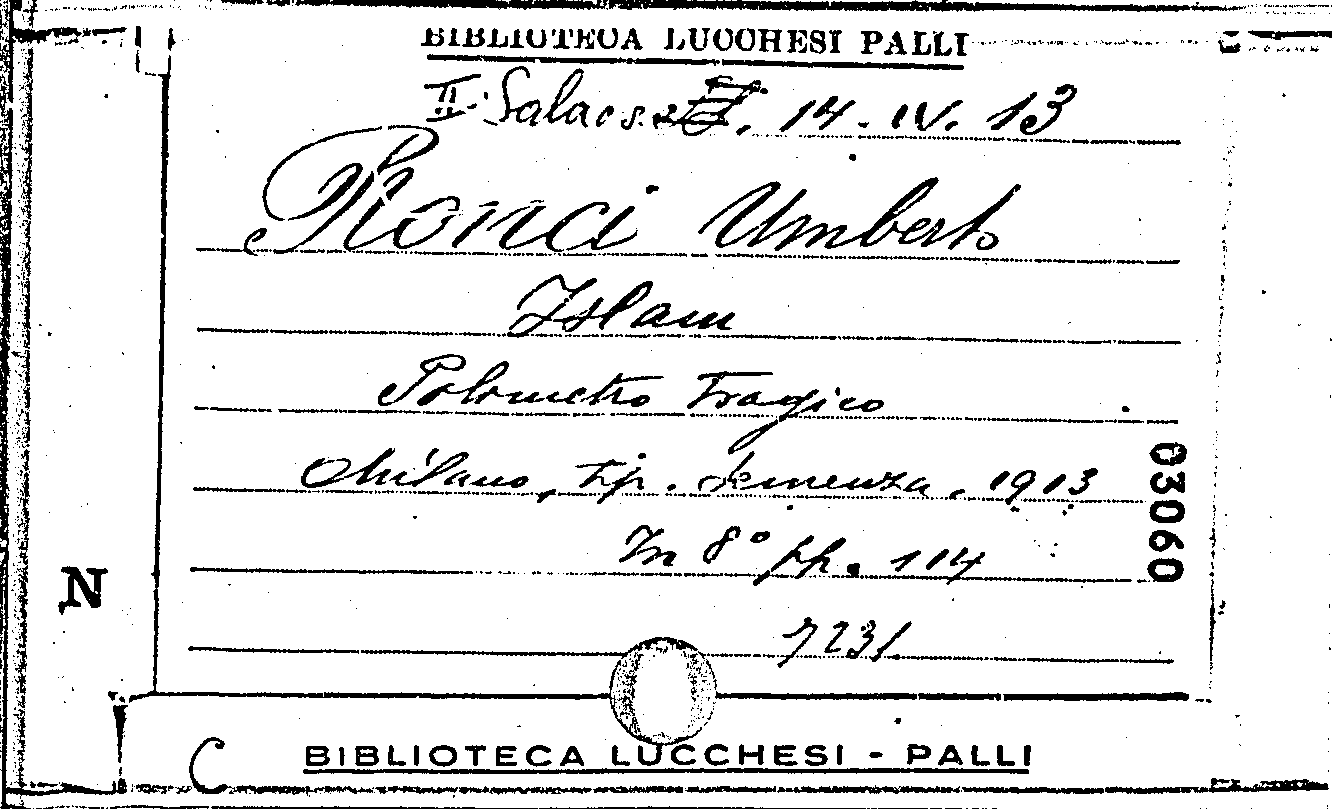 BIBLIOTECA LUCCHESI PALLI
II. Sala 14. IV. 13
Ronci Umberto
Islam
Polimetro Tragico
Milano, tip. Semenza, 1913
In 8° pp. 114
7231
03060
N
C
BIBLIOTECA LUCCHESI - PALLI